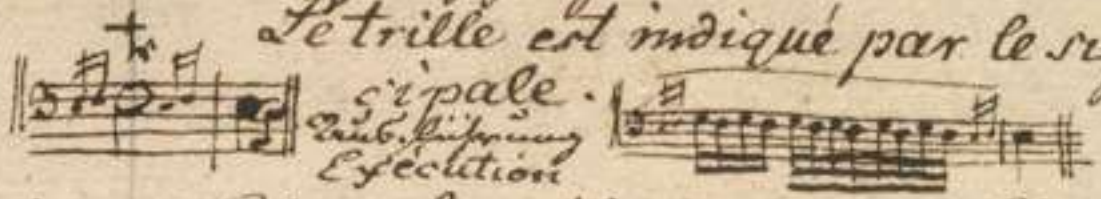 Le trille est indiqué par le si
cipale.
Ausführung
Exécution